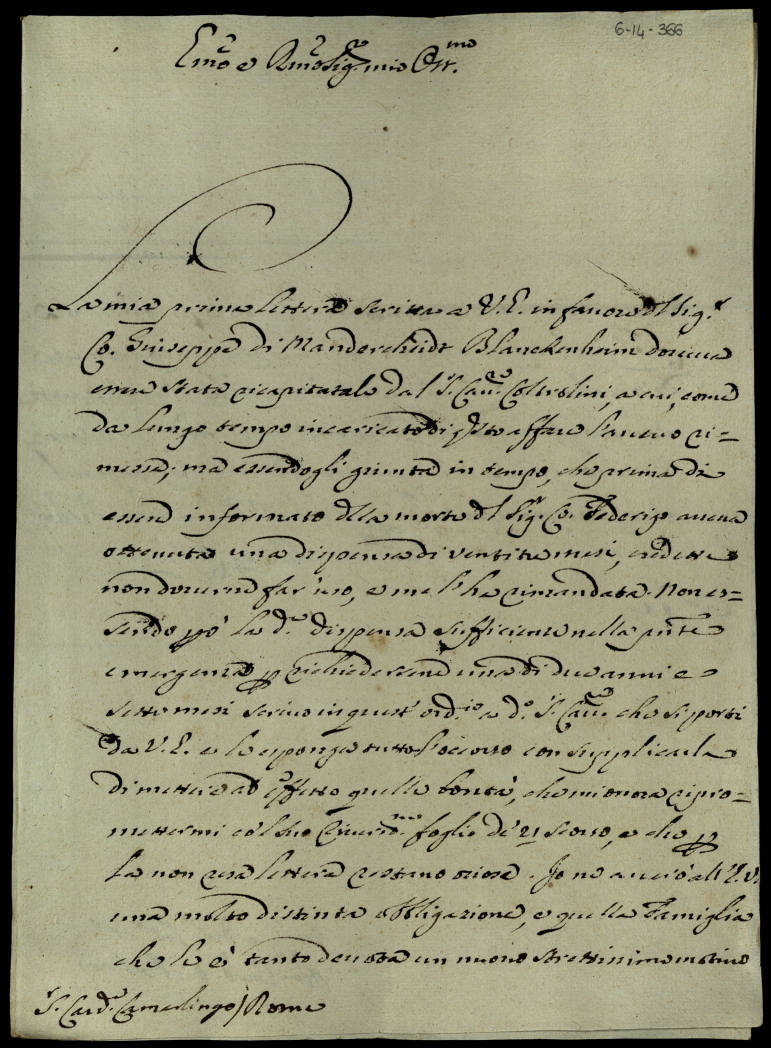 6-14-366
Emo e Rmo Sig. mio Oss.mo
La mia prima lettera scritta a V.E. in favore dl Sig.r
Co. Giuseppe di Manderscheidt Blanckenheim doveva
essere stata ricapitatale dal S. Cav.re Coltrolini, a cui, come
da lungo tempo incaricato di qsto affare l'avevo ri=
messa; ma essendogli giunta in tempo, che prima di
essere informato della morte dl Sig.r Co. Federigo aveva
ottenuta una dispensa di ventitre mesi, credette
non doverne far uso, e me l'ha rimandata. Non es=
sendo però la d.a dispensa sufficiente nella pnte
emergenza p richiedersene una di due anni e
sette mesi scrivo in quest' ord.io a d.o S. Cav.re che si porti
da V.E. e le esponga tutto l'occorso con supplicarla
di mettere ad effetto quella bontà, che mi onora ripro=
mettermi col suo River.mo foglio de' 21 scorso, e che p
la non resa lettera restano oziose. Io ne averò all' E.V.
una molto distinta obbligazione, e quella Famiglia
che le è tanto devota un nuovo strettissimo motivo
S. Card. Camerlingo / Roma